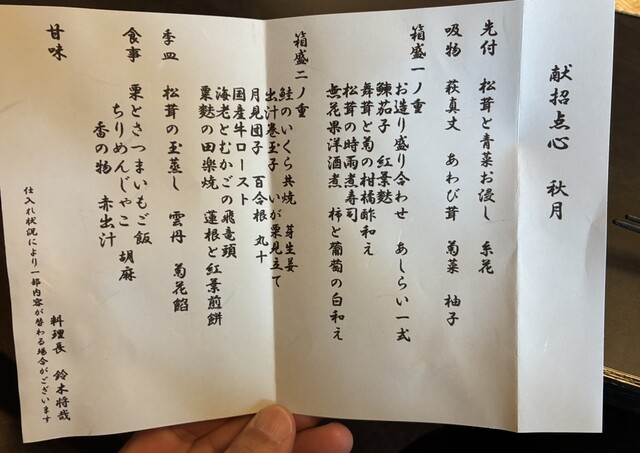 献招点心 秋月
先付 松茸と青菜お浸し 糸花
吸物 萩真丈 あわび茸 菊菜 柚子
箱盛一ノ重
お造り盛り合わせ あしらい一式
鰊茄子 紅葉麩
舞茸と菊の柑橘酢和え
松茸の時雨煮寿司
無花果洋酒煮 柿と葡萄の白和え
箱盛二ノ重
鮭のいくら共焼 芽生姜
出汁巻玉子 いが栗見立て
月見団子 百合根 丸十
国産牛ロースト
海老とむかごの飛竜頭
粟麩の田楽焼 蓮根と紅葉煎餅
季皿 松茸の玉蒸し 雲丹 菊花餡
食事 栗とさつまいもご飯 胡麻
ちりめんじゃこ
香の物 赤出汁
甘味
料理長 鈴木将哉
仕入れ状況により一部内容が替わる場合がございます